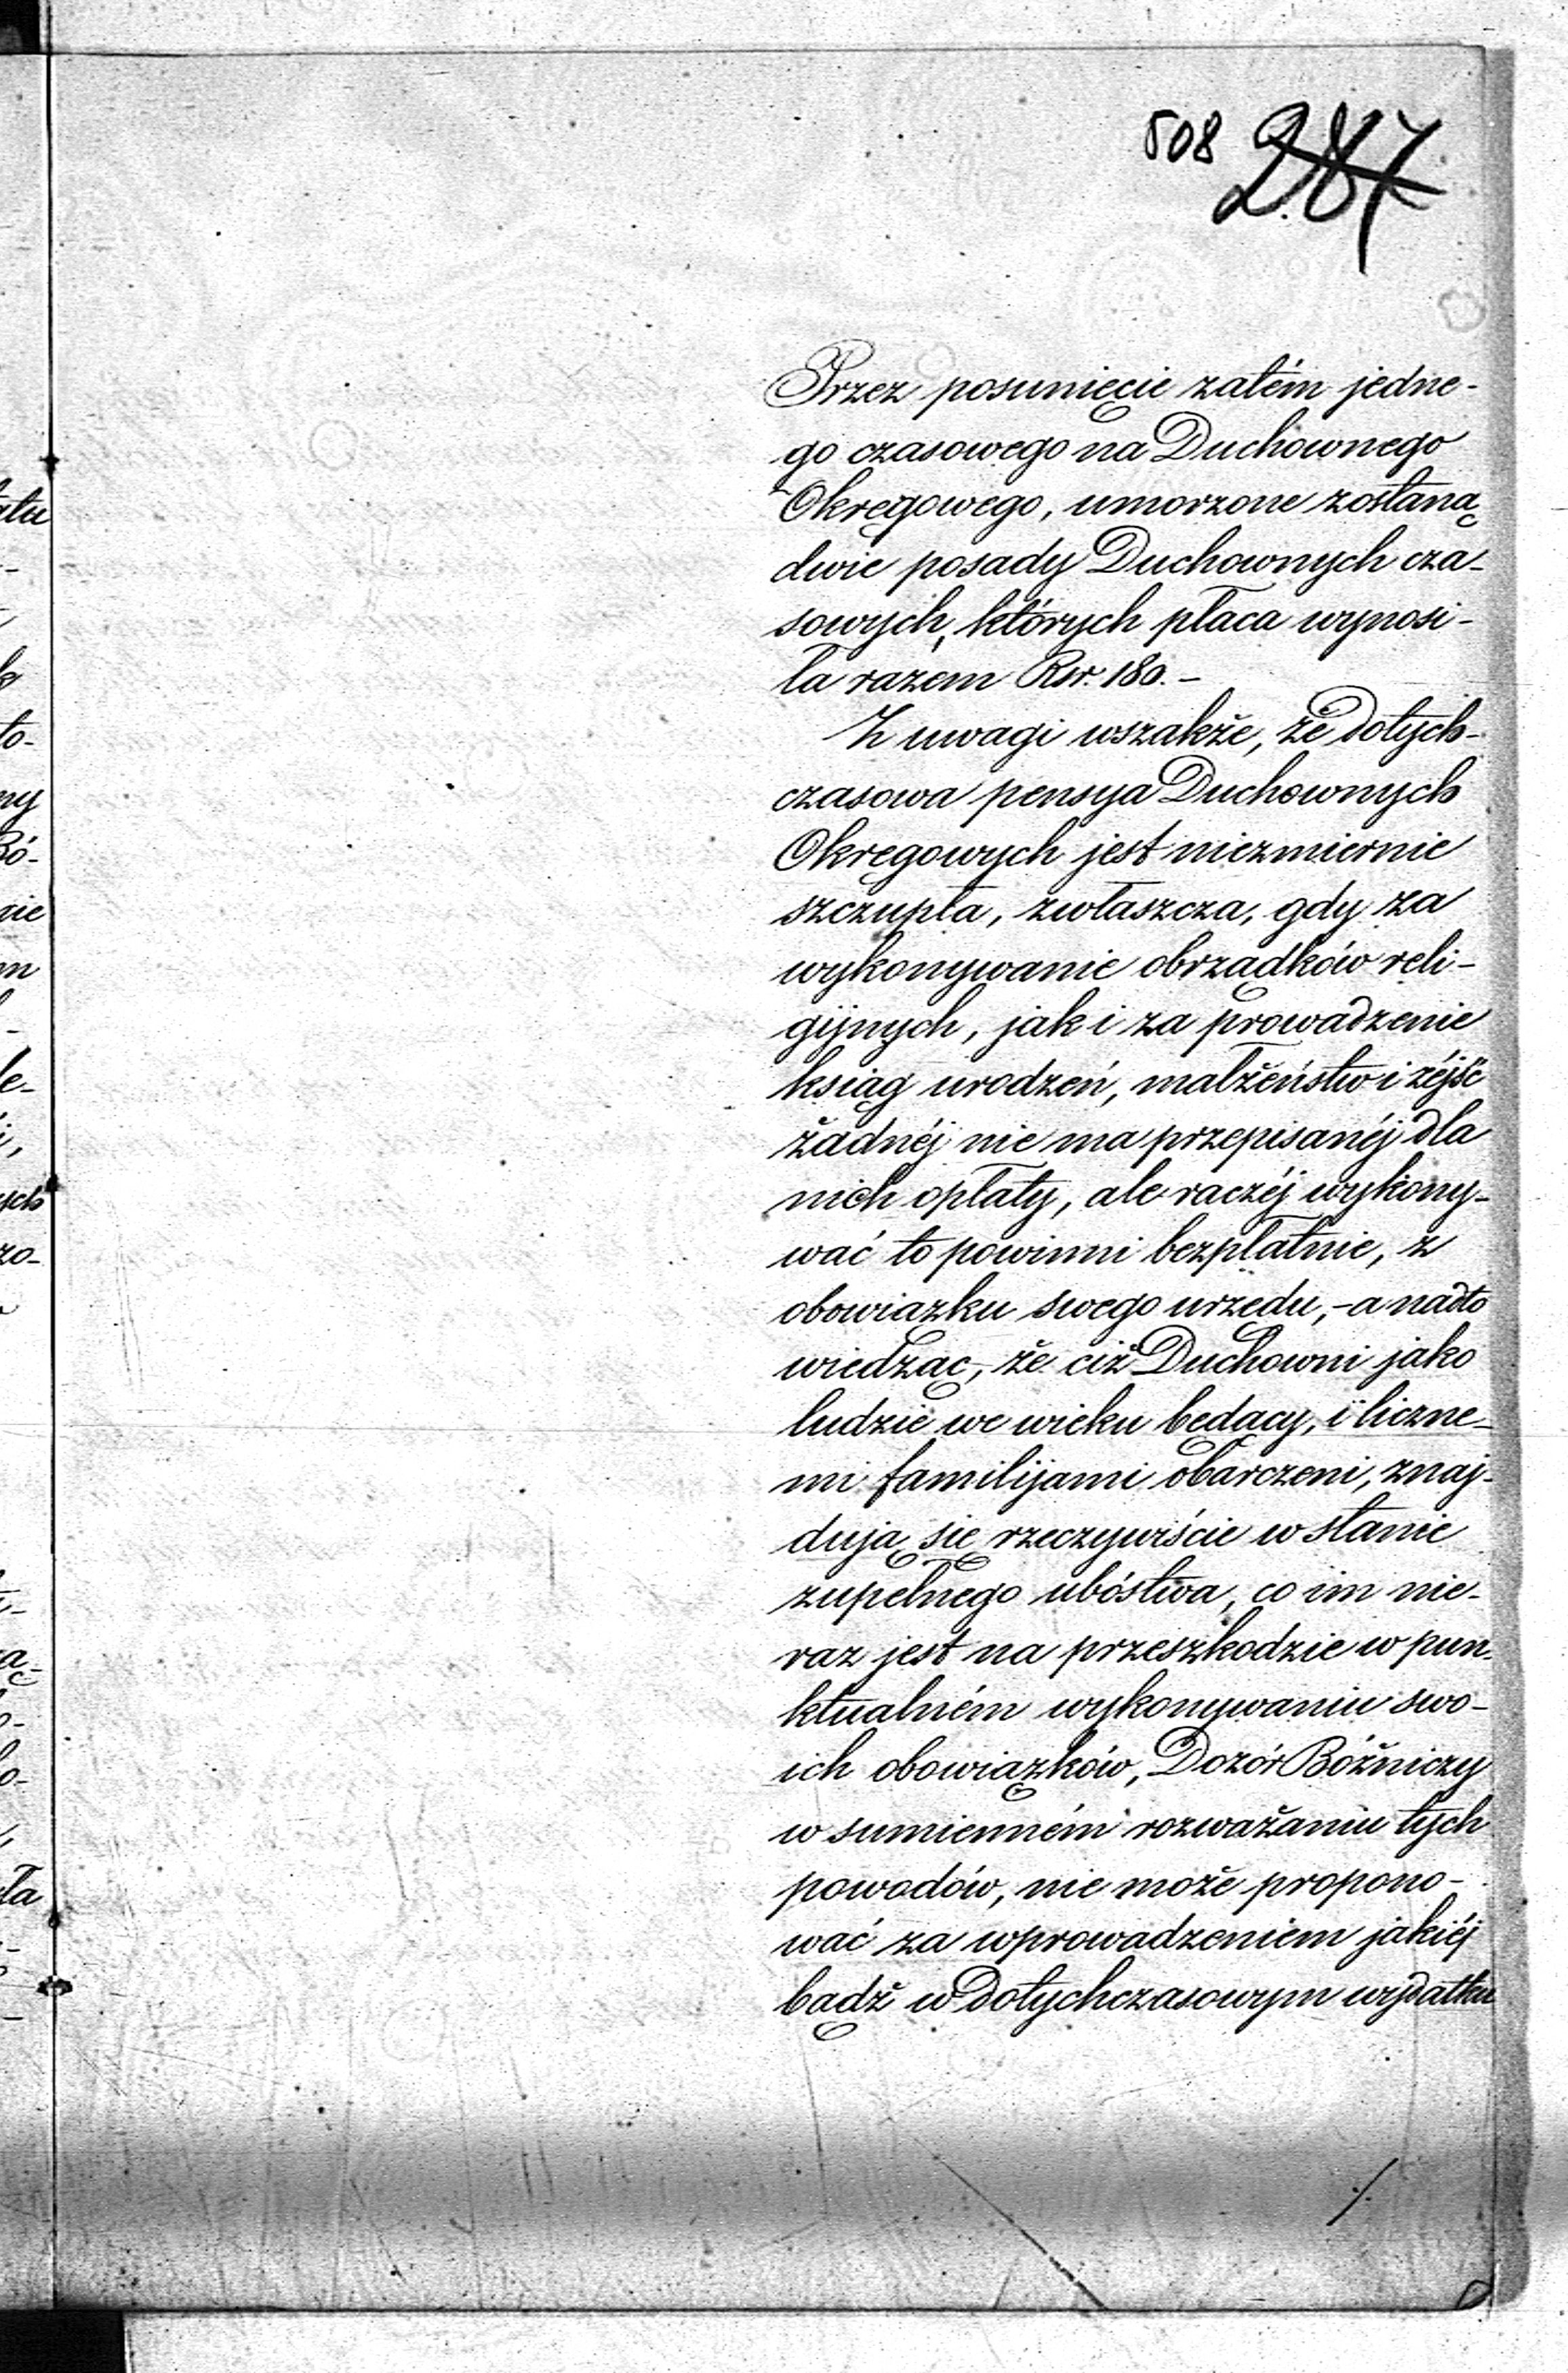 508 287
Przez posunięcie zatém jedne-
go czasowego na Duchownego
Okręgowego, umorzone zostaną
dwie posady Duchownych cza-
sowych, których płaca wynosi-
ła razem Rsr. 180.-
Z uwagi wszakże, że dotych-
czasowa pensya Duchownych
Okręgowych jest niezmiernie
szczupła, zwłaszcza, gdy za
wykonywanie obrządków reli-
gijnych, jak i za prowadzenie
ksiąg urodzeń, małżeństw i zéjść
żadnéj nie ma przepisanéj dla
nich opłaty, ale raczéj wykony-
wać to powinni bezpłatnie, z
obowiązku swego urzędu, - a nadto
wiedząc, że ciż Duchowni jako
ludzie we wieku będący, i liczne-
mi familijami obarczeni, znaj-
dują się rzeczywiście w stanie
zupełnego ubóstwa, co im nie-
raz jest na przeszkodzie w pun-
ktualném wykonywaniu swo-
ich obowiązków, Dozór Bóżniczy
w sumienném rozważaniu tych
powodów, nie może propono-
wać za wprowadzeniem jakiéj
bądź w dotychczasowym wydatku
./.